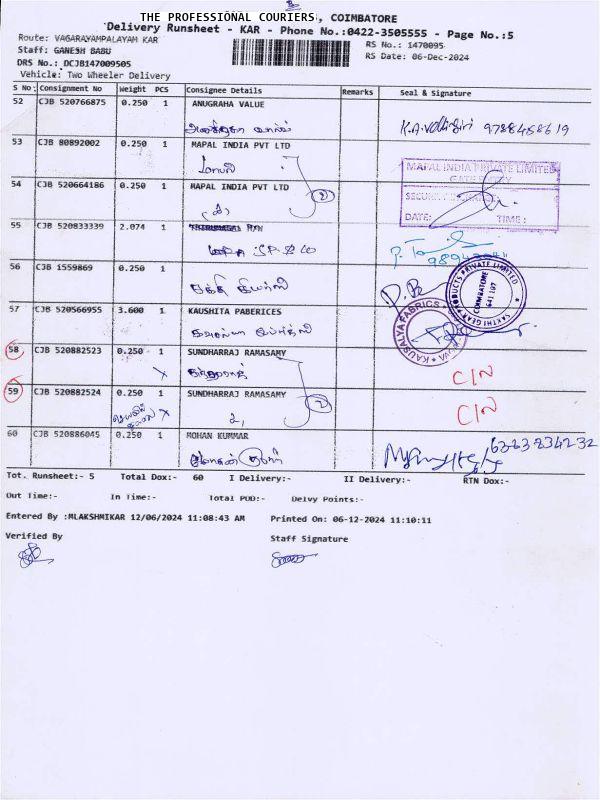 THE PROFESSIONAL COURIERS, COIMBATORE
Delivery Runsheet - KAR - Phone No.:0422-3505555 - Page No.:5
Route: VAGARAYAMPALAYAM KAR
RS No.: 1470095
Staff: GANESH BABU
RS Date: 06-Dec-2024
DRS No.: DCJB147009505
Vehicle: Two Wheeler Delivery
S No Consignment No Weight PCS Consignee Details Remarks Seal & Signature
52 CJB 520766875 0.250 1 ANUGRAHA VALUE
53 CJB 80892002 0.250 1 MAPAL INDIA PVT LTD
மாபல்
MAPAL INDIA PRIVATE LIMITED
SECURITY
DATE: TIME:
54 CJB 520664186 0.250 1 MAPAL INDIA PVT LTD
(2)
55 CJB 520833339 2.074 1
56 CJB 1559869 0.250 1
SAKTHI GEAR PRODUCTS PRIVATE LIMITED
COIMBATORE
641 107
57 CJB 520566955 3.600 1 KAUSHITA PABERICES
KAUSALYA FABRICS
58 CJB 520882523 0.250 1 SUNDHARRAJ RAMASAMY
X
C/N
59 CJB 520882524 0.250 1 SUNDHARRAJ RAMASAMY
X
(2)
C/N
60 CJB 520886045 0.250 1 MOHAN KUMMAR
Tot. Runsheet:- 5 Total Dox:- 60 I Delivery:- II Delivery:- RTN Dox:-
Out Time:- In Time:- Total POD:- Delvy Points:-
Entered By :MLAKSHMIKAR 12/06/2024 11:08:43 AM Printed On: 06-12-2024 11:10:11
Verified By Staff Signature